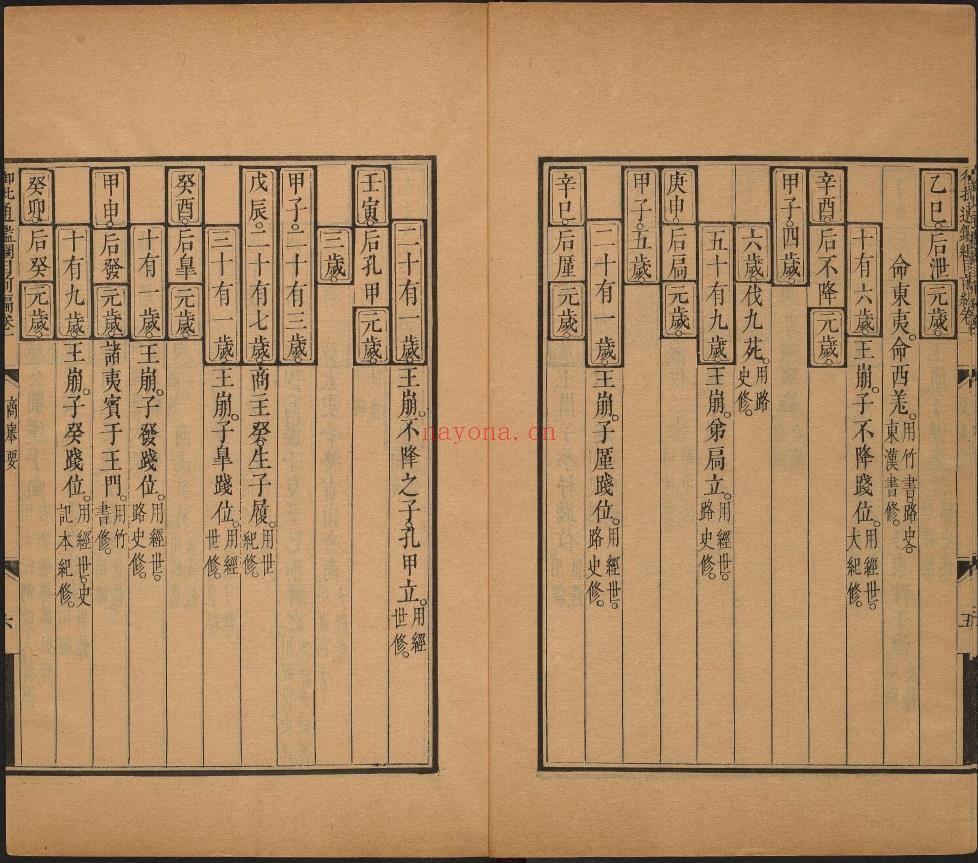 乙巳。后泄元歲。
命東夷。命西羌。用竹書路史東漢書修。
十有六歲。王崩。子不降踐位。用經世。大紀修。
辛酉。后不降元歲。
甲子。四歲。
六歲。伐九苑。用路史修。
五十有九歲。王崩。弟扃立。用經世。路史修。
庚申。后扃元歲。
甲子。五歲。
二十有一歲。王崩。子厪踐位。用經世。路史修。
辛巳。后厪元歲。
二十有一歲。王崩。不降之子孔甲立。用經世修。
壬寅。后孔甲元歲。
三歲。
甲子。二十有三歲。
戊辰。二十有七歲。商主癸。生子履。用世紀修。
三十有一歲。王崩。子皐踐位。用經世修。
癸酉。后皐元歲。
十有一歲。王崩。子發踐位。用經世。路史修。
甲申。后發元歲。諸夷賓于王門。用竹書修。
十有九歲。王崩。子癸踐位。用經世。史記本紀修。
癸卯。后癸元歲。
御批通鑑綱目前編卷 舉要 六
五
nayona.cn